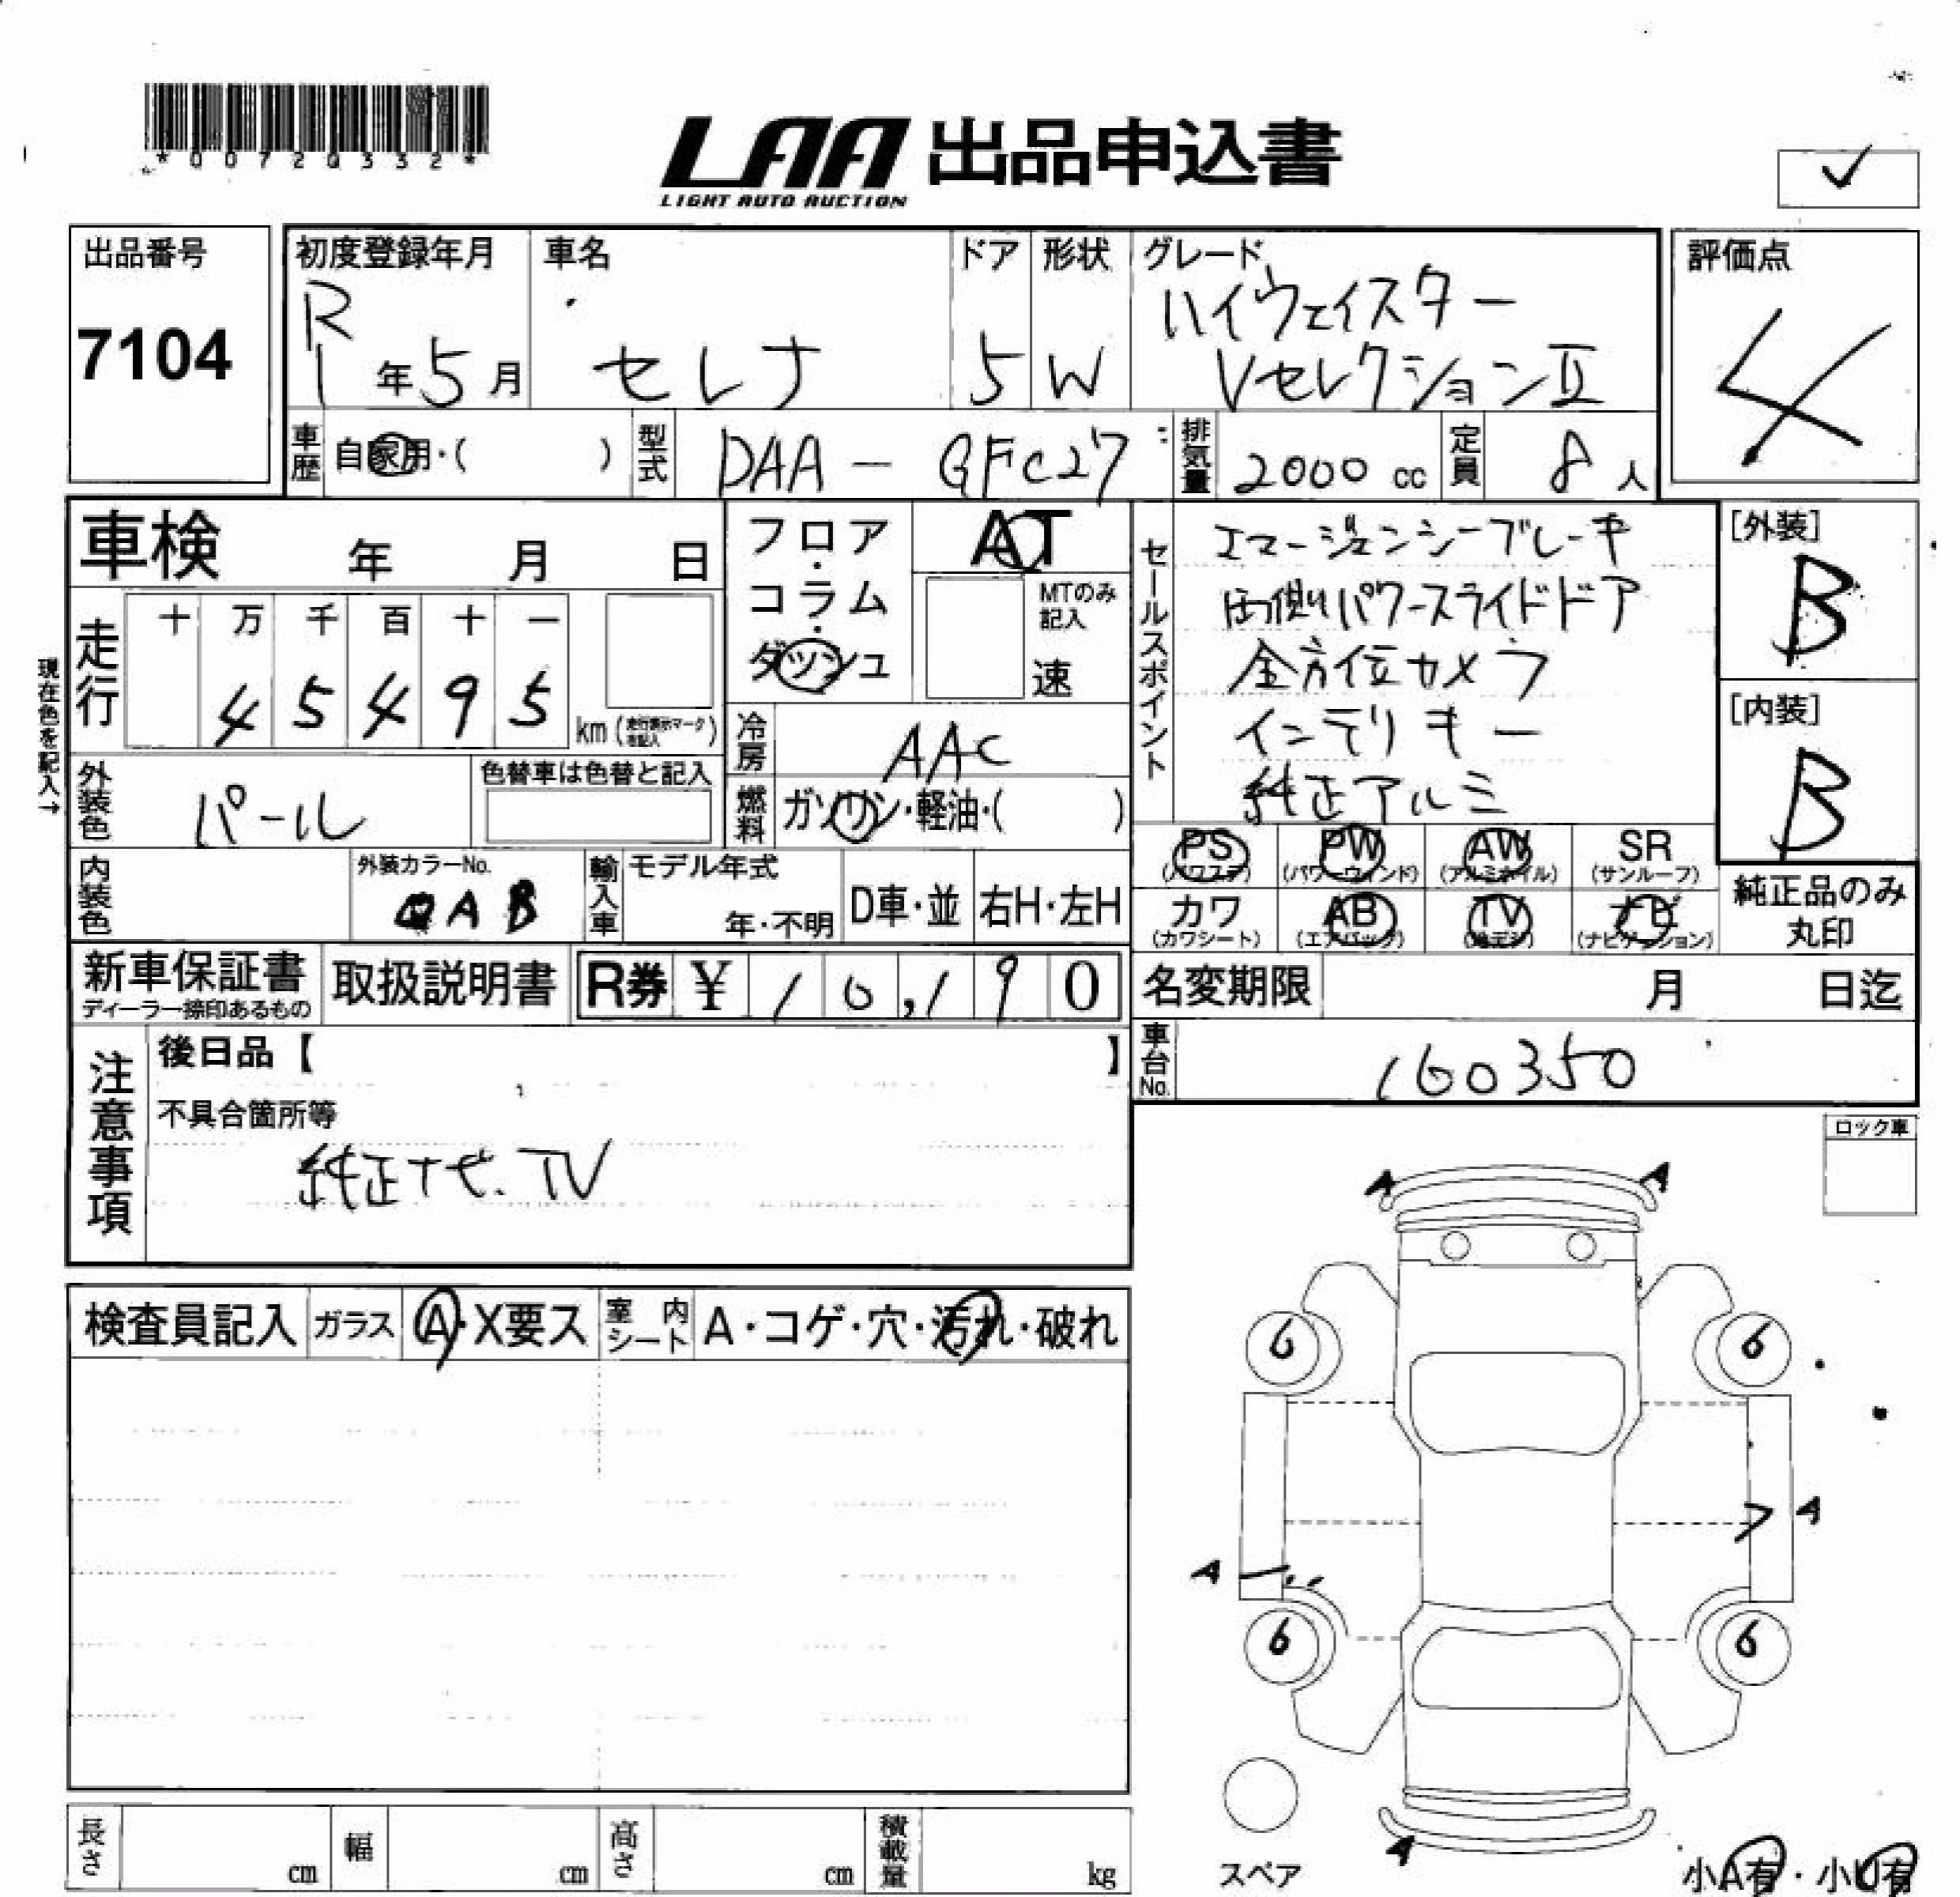 *00720332*
LAA 出品申込書
LIGHT AUTO AUCTION
✓
出品番号
7104
初度登録年月
R
1年5月
車名
セレナ
ドア
5
形状
W
グレード
ハイウェイスター
VセレクションⅡ
評価点
4
車歴
自家用・( )
型式
DAA - GFC27
排気量
2000 cc
定員
8人
車検 年 月 日
フロア・コラム・ダッシュ
AT
MTのみ記入
速
セールスポイント
エマージェンシーブレーキ
両側パワースライドドア
全方位カメラ
インテリキー
純正アルミ
[外装]
B
[内装]
B
現在色を記入→
走行
十 万 千 百 十 一
4 5 4 9 5
km (走行表示マーク右記入)
冷房
AAC
外装色
パール
色替車は色替と記入
燃料
ガソリン・軽油・( )
PS
(パワステ)
PW
(パワーウインド)
AW
(アルミホイル)
SR
(サンルーフ)
内装色
外装カラーNo.
QAB
輸入車
モデル年式
年・不明
D車・並
右H・左H
カワ
(カワシート)
AB
(エアバック)
TV
(地デジ)
ナビ
(ナビゲーション)
純正品のみ
丸印
新車保証書
ディーラー捺印あるもの
取扱説明書
R券 ¥ 10,190
名変期限 月 日迄
車台No.
160350
注意事項
後日品【 】
不具合箇所等
純正ナビ.TV
ロック車
A A
検査員記入
ガラス
A・X要ス
室内シート
A・コゲ・穴・汚れ・破れ
6 6
A
A
6 6
A
スペア
小A有・小U有
長さ cm
幅 cm
高さ cm
積載量 kg